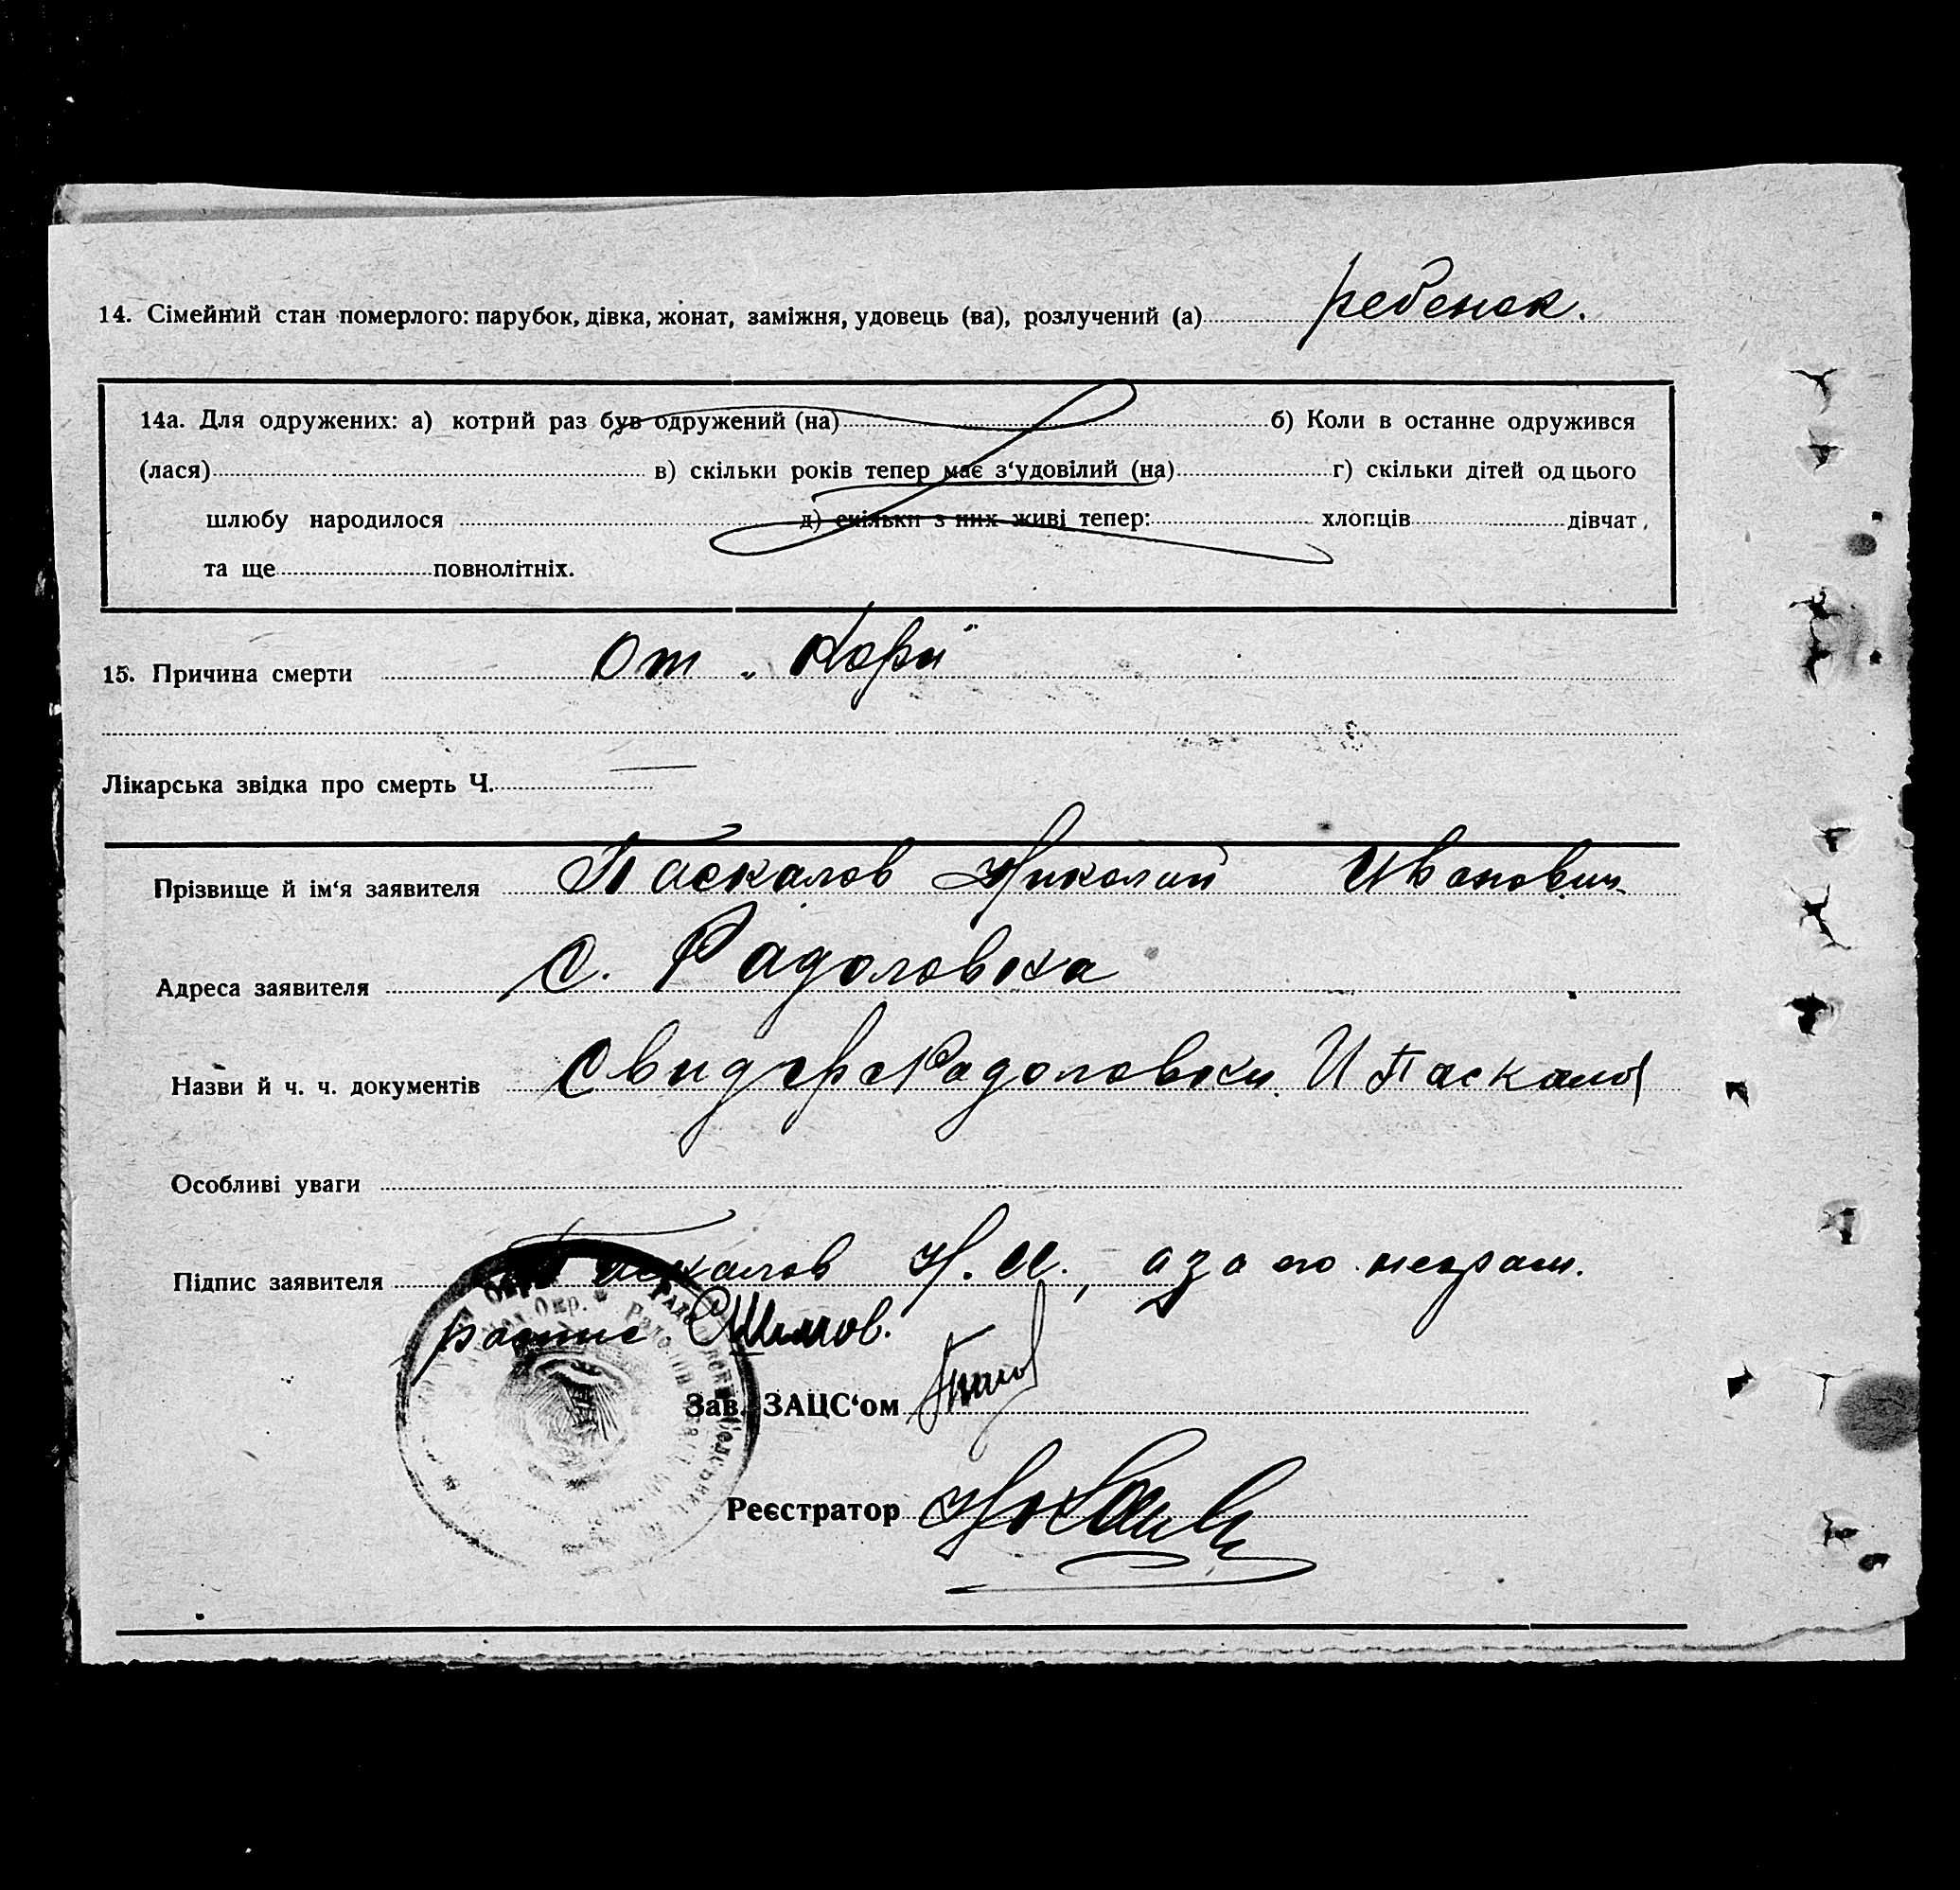 14. Сімейний стан померлого: парубок, дівка, жонат, заміжня, удовець (ва), розлучений (а) ребенок.
14а. Для одружених: а) котрий раз був одружений (на) б) Коли в останне одружився
(лася) в) скільки років тепер має з‘удовілий (на) г) скільки дітей од цього
шлюбу народилося д) скільки з них живі тепер: хлопців дівчат,
та ще повнолітніх.
15. Причина смерти От „Кори"
Лікарська звідка про смерть Ч.
Прізвище й ім‘я заявителя Паскалов Николай Иванович
Адреса заявителя С. Радоловка
Назви й ч. ч. документів И Паскалов
Особливі уваги
Підпис заявителя Паскалов Н. И., а за его неграм.
распис
Зав. ЗАЦС‘ом
Реєстратор